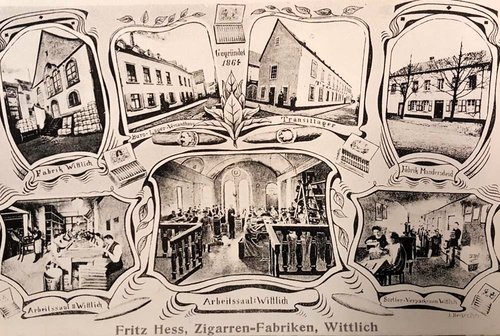 Gegründet
1864
Transitlager
Fabrik Wittlich
Fabrik Manderscheid
Arbeitssaal II Wittlich
Arbeitssaal I Wittlich
Sortier-Verpackraum Wittlich
Fritz Hess, Zigarren-Fabriken, Wittlich